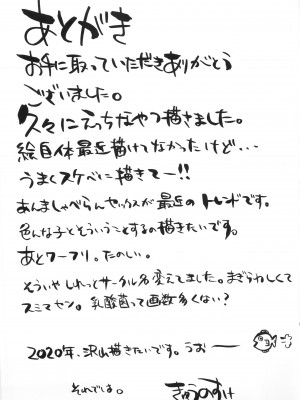 あとがき
お手に取っていただきありがとう
ございました。
久々にえっちなやつ描きました。
絵自体最近描けてなかったけど…
うまくスケベに描きてー!!
あんましゃべらんセックスが最近のトレンドです。
色んな子とそういうことするの描きたいです。
あとワーフリ。たのしい。
そういやしれっとサークル名変えてました。まぎらわしくて
スミマセン。乳酸菌って画数多くない?
2020年、沢山描きたいです。うおー
それでは。
きゅうのすけ